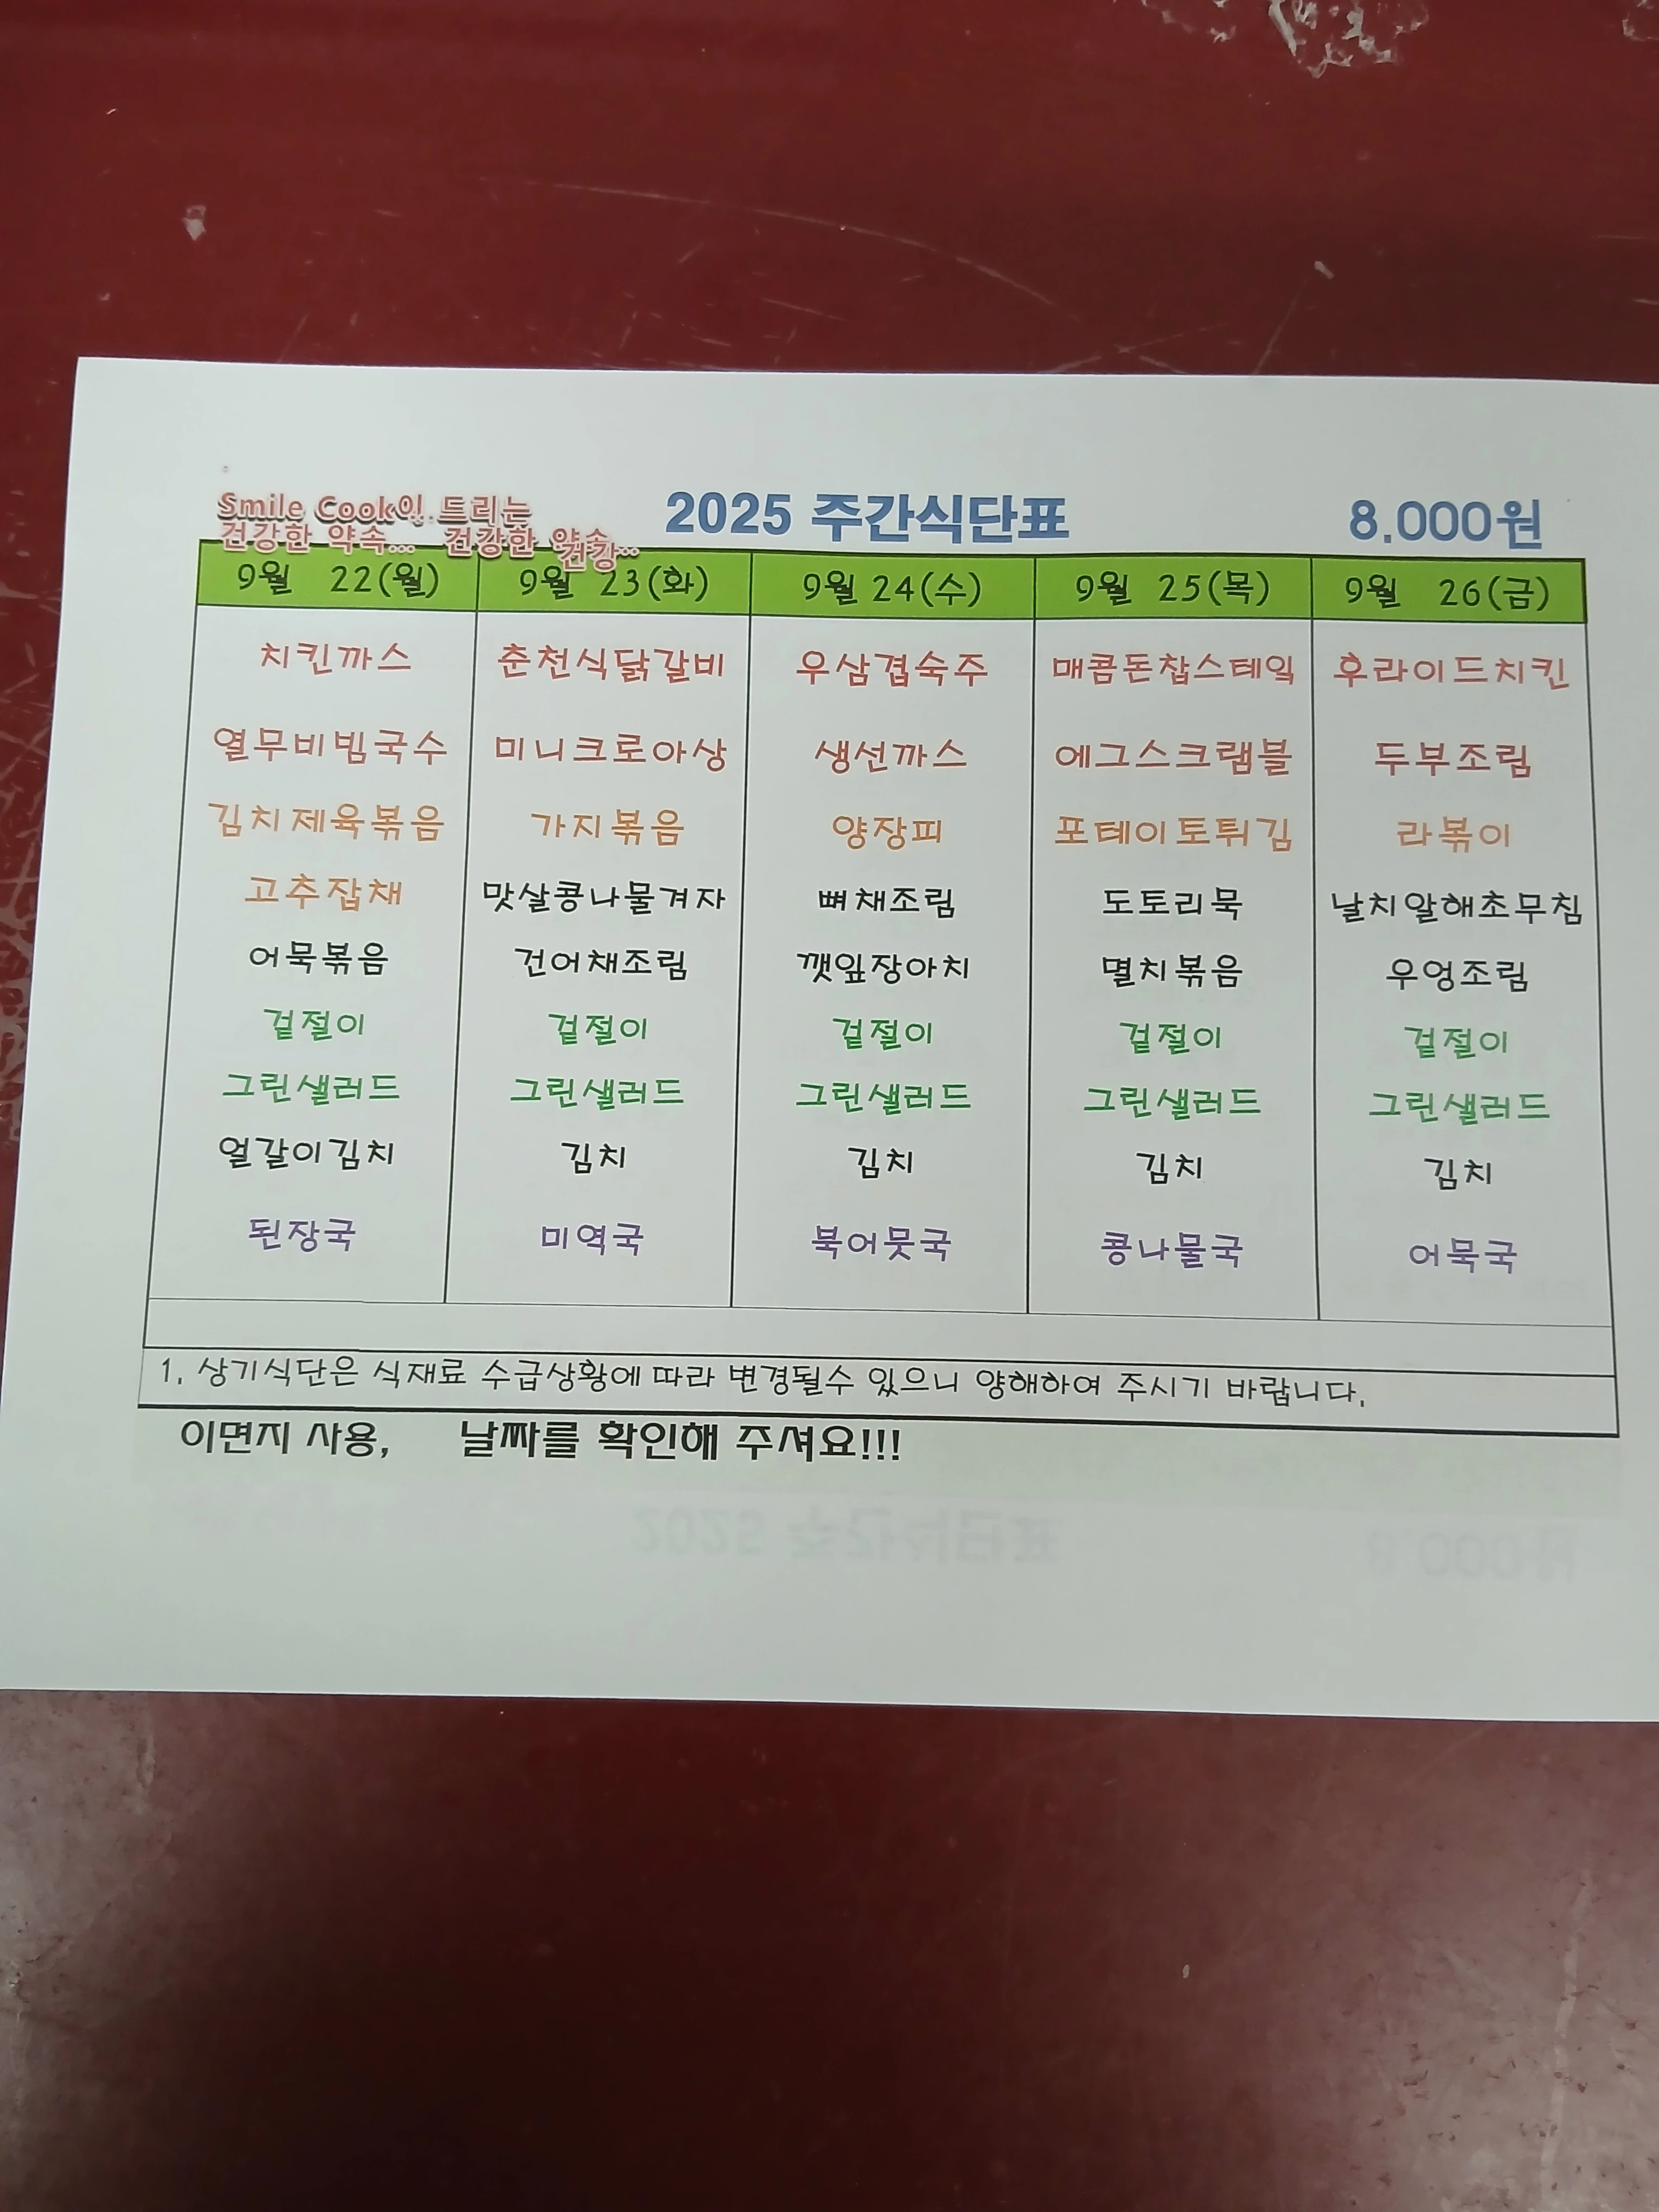 Smile Cook이 드리는
건강한 약속... 건강한 약속..
건강
2025 주간식단표 8.000원
9월 22(월) 9월 23(화) 9월 24(수) 9월 25(목) 9월 26(금)
치킨까스 춘천식닭갈비 우삼겹숙주 매콤돈찹스테잌 후라이드치킨
열무비빔국수 미니크로아상 생선까스 에그스크램블 두부조림
김치제육볶음 가지볶음 양장피 포테이토튀김 라볶이
고추잡채 맛살콩나물겨자 뼈채조림 도토리묵 날치알해초무침
어묵볶음 건어채조림 깻잎장아치 멸치볶음 우엉조림
겉절이 겉절이 겉절이 겉절이 겉절이
그린샐러드 그린샐러드 그린샐러드 그린샐러드 그린샐러드
얼갈이김치 김치 김치 김치 김치
된장국 미역국 북어뭇국 콩나물국 어묵국
1. 상기식단은 식재료 수급상황에 따라 변경될수 있으니 양해하여 주시기 바랍니다.
이면지 사용, 날짜를 확인해 주셔요!!!
2025 주간식단표 8.000원